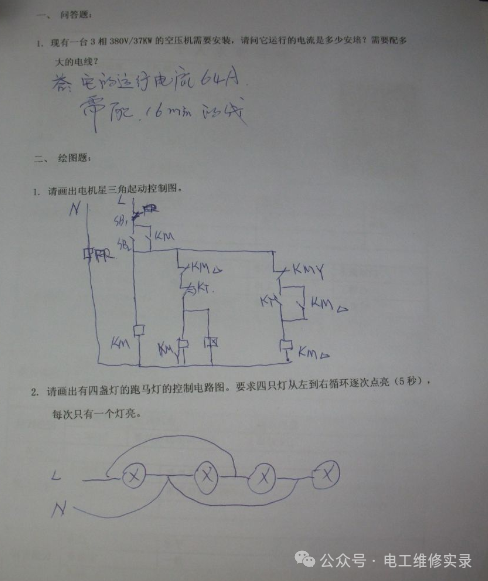 一、 问答题：
1. 现有一台 3 相 380V/37KW 的空压机需要安装，请问它运行的电流是多少安培？需要配多
大的电线？
答: 它的运行电流 64A
需配 16mm 的线
二、 绘图题：
1. 请画出电机星三角起动控制图。
N L
SB1 FR
SB2 KM
FR
KM△ KMY
KT KT KM△
KM KM KM△
2. 请画出有四盏灯的跑马灯的控制电路图。要求四只灯从左到右循环逐次点亮（5 秒），
每次只有一个灯亮。
L
N
公众号 · 电工维修实录